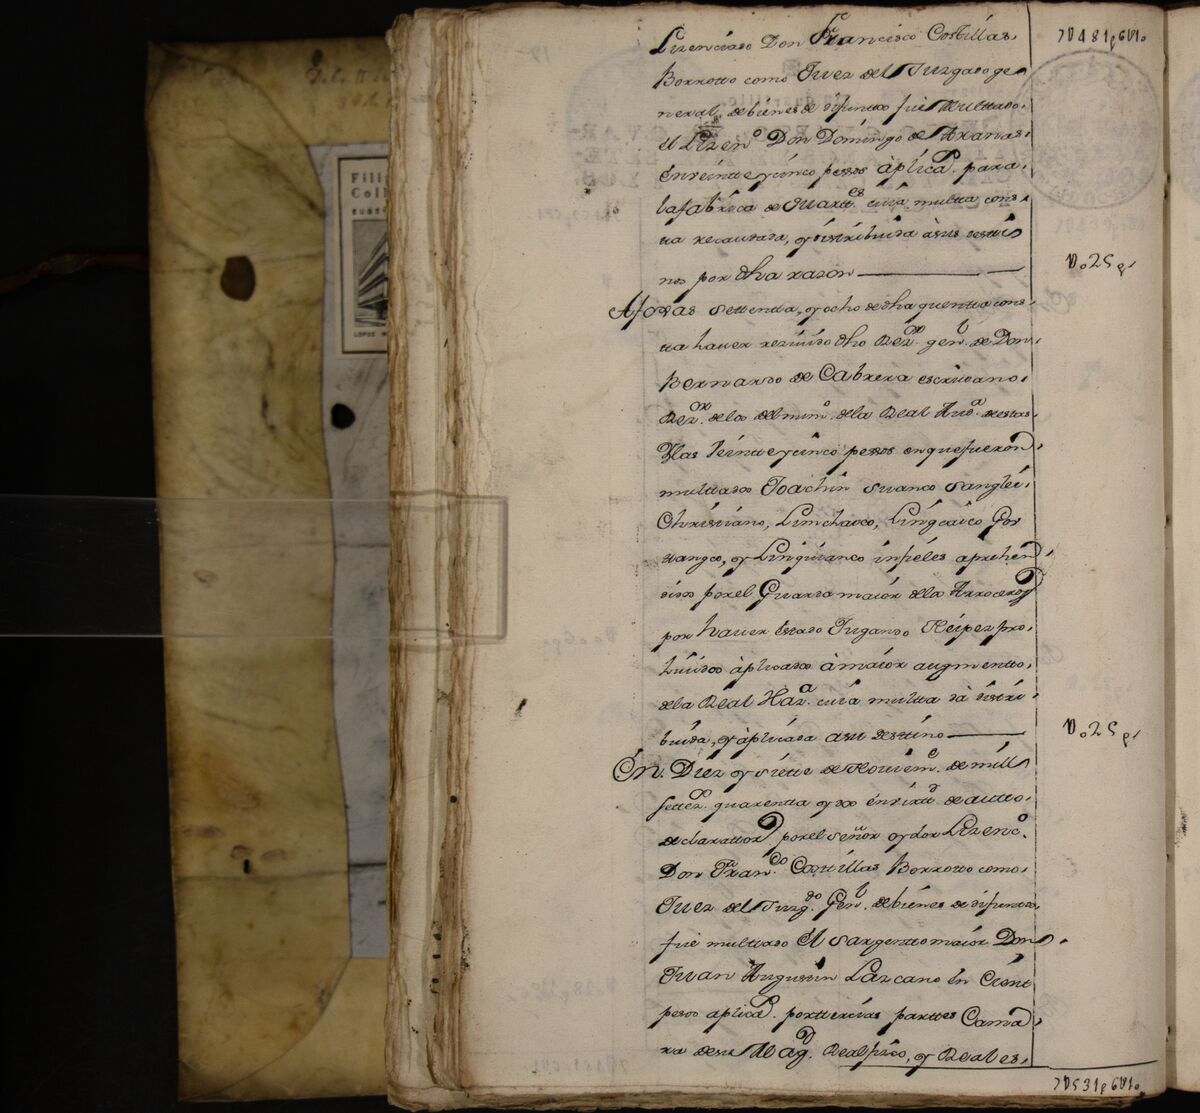 Lizenciado Don Francisco Costillas
Borrotto como Juez del Juzgado ge
neral de bienes de difuntos fue Multtado
el Lizen.do Don Domingo de Aranas
en veinte y cinco pessos àplica.s para
la fabrica de Quartt.es cuia multta cons
ta recaudada, y distribuida à sus desti
nos por dha razon
A foxas settenta, y ocho de dha quentta cons
ta haver rezivido dho Rez.or gen.l de Don
Bernardo de Cabrera escrivano
Rez.or delos del num.o dela Real Aud.a destas
Yslas Veinte y cinco pessos en que fueron
multtados Joachin Suanco Sanglei
Christiano, Limchaoco, Lingcaico Gor
tiangco, y Linguianco infieles aprehen
didos por el Guarda maior dela Arroceros
por haver estado Jugando Neipez pro
hividos àplicados à maior augmentto
dela Real Haz.a cuia multta dà distri
buida, y àplicada asu desttino
En Diez y Siette de Noviem.e de mill
settez.s quarenta y dos en virtt.d de autto
declarattorio por el señor oydor Lizenc.o
Don Fran.co Costtillas Borrotto como
Juez del Juzg.do Gen.l de bienes de difuntos
fue multtado el Sargentto maior Don
Juan Augustin Lazcano en Cient
pesos aplica.s por ttercias parttes Cama
ra de su Mag.d Real fisco, y Reales
U.o25p.s
U.o25p.s